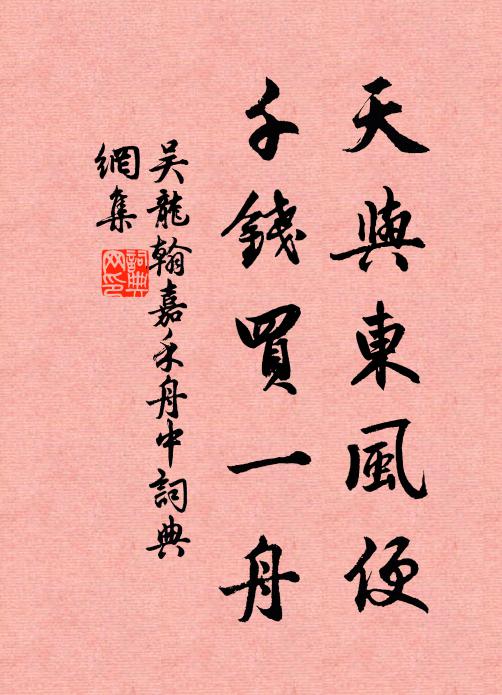 天與東風便
千錢買一舟
吴龍翰嘉禾舟中詞典
網集
詞典
网印